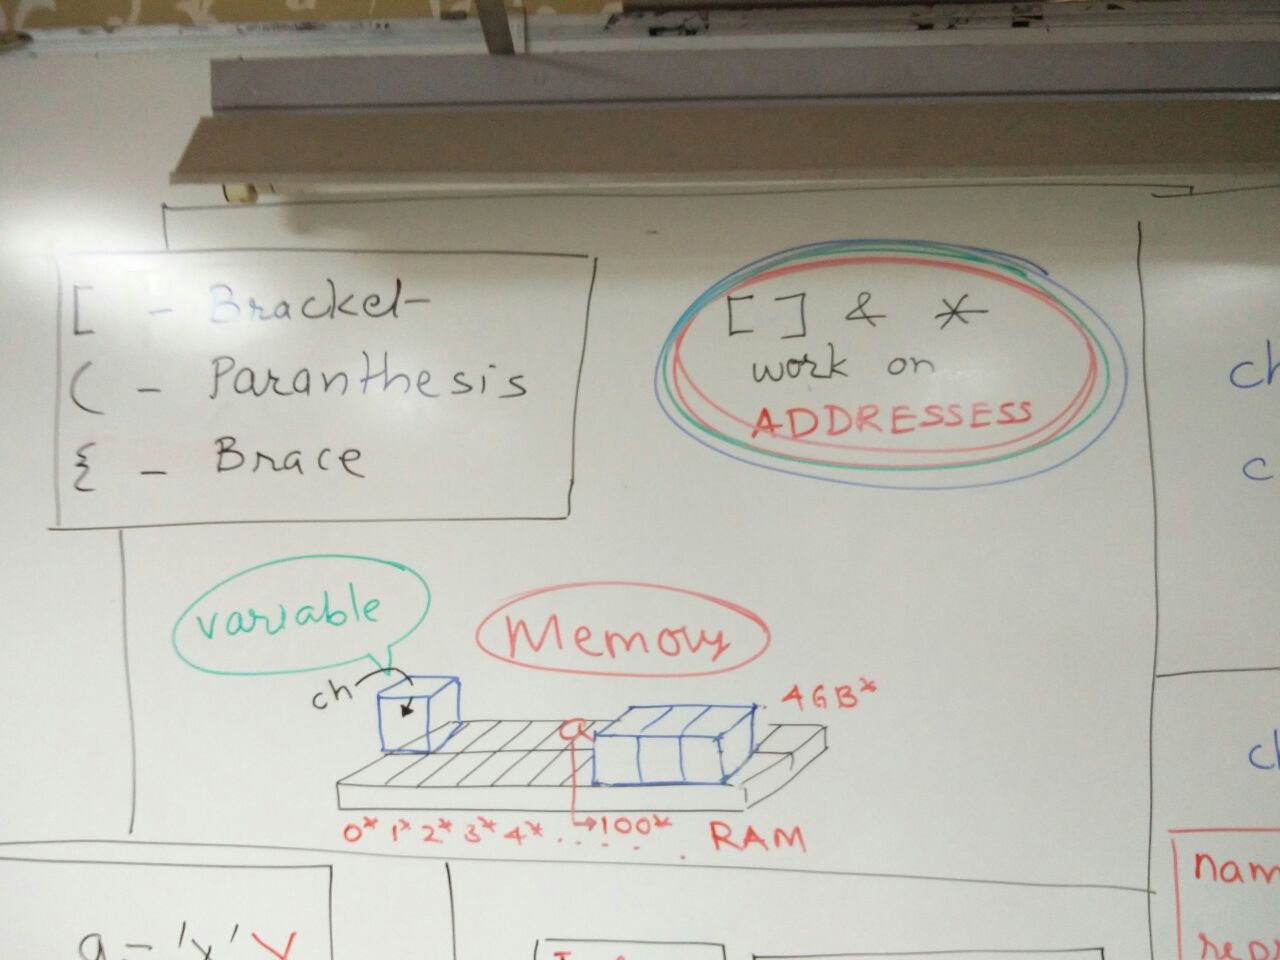 [ - Bracket
( - Paranthesis
{ - Brace
[ ] & *
work on
ADDRESSESS
variable
Memory
ch
4GB*
a
0* 1* 2* 3* 4* ..... 100*
RAM
ch
c
ch
nam
repr
a = 'x'